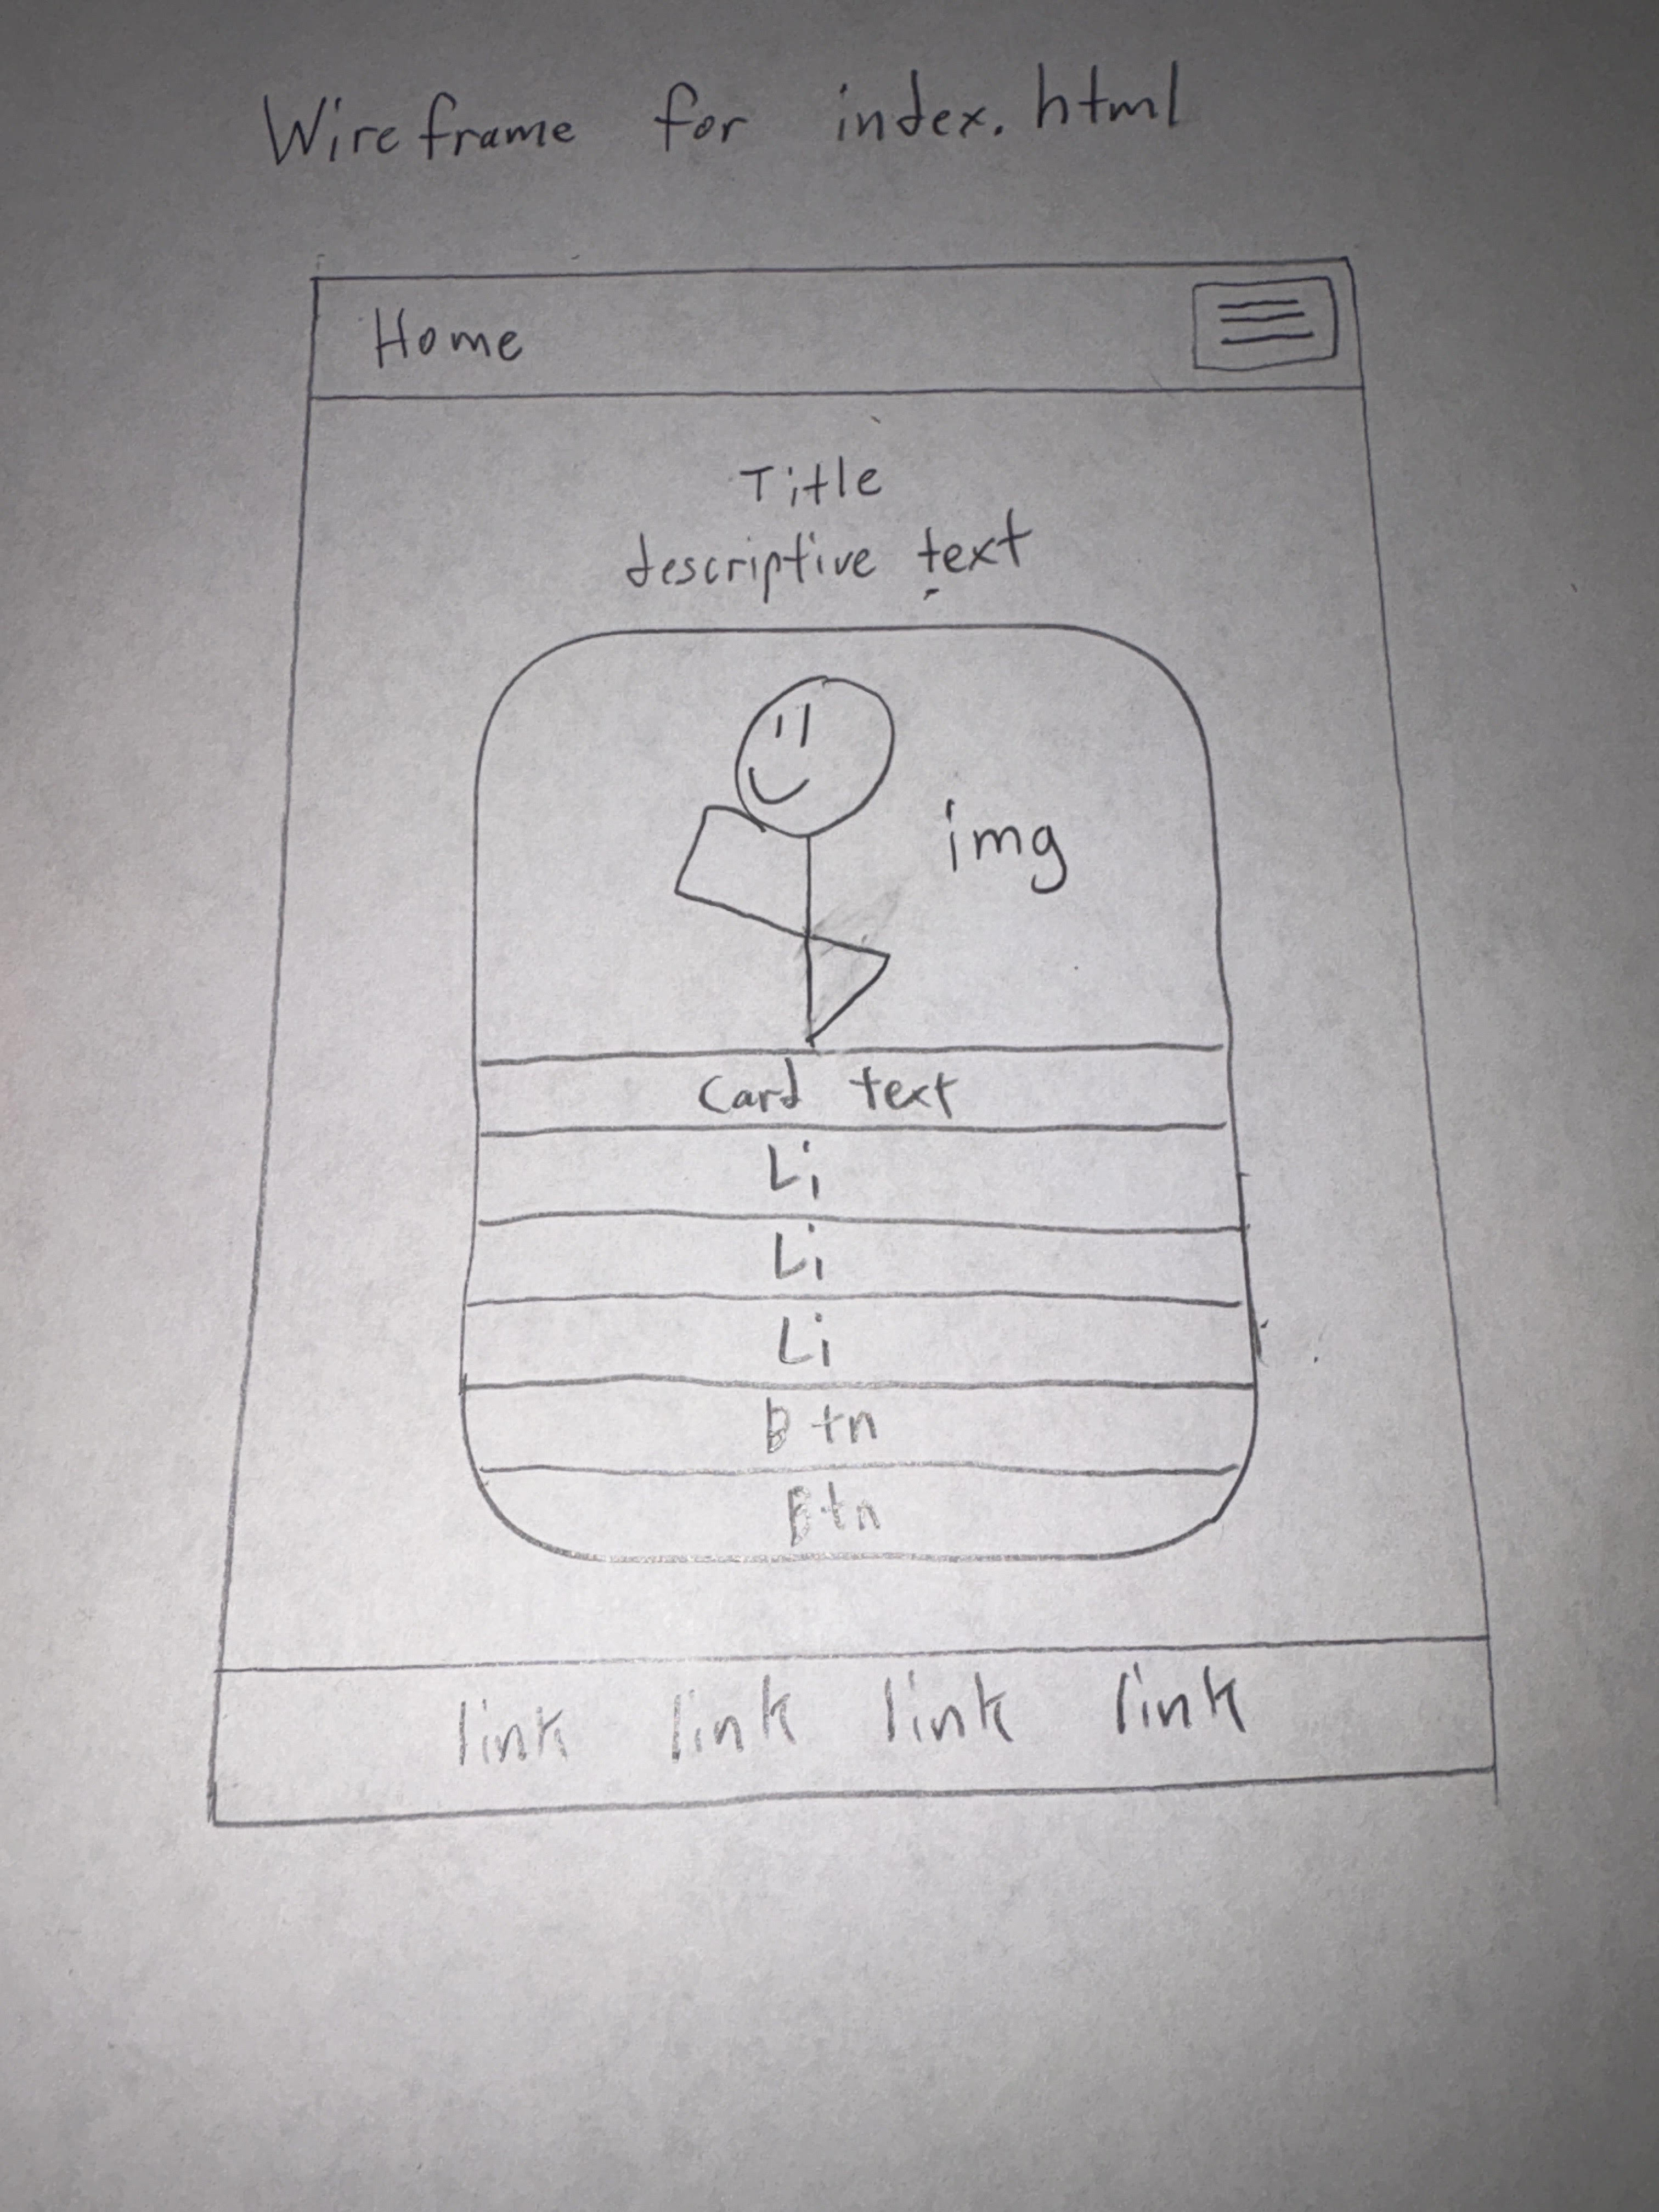 Wireframe for index.html
Home
Title
descriptive text
img
Card text
Li
Li
Li
Btn
Btn
link link link link